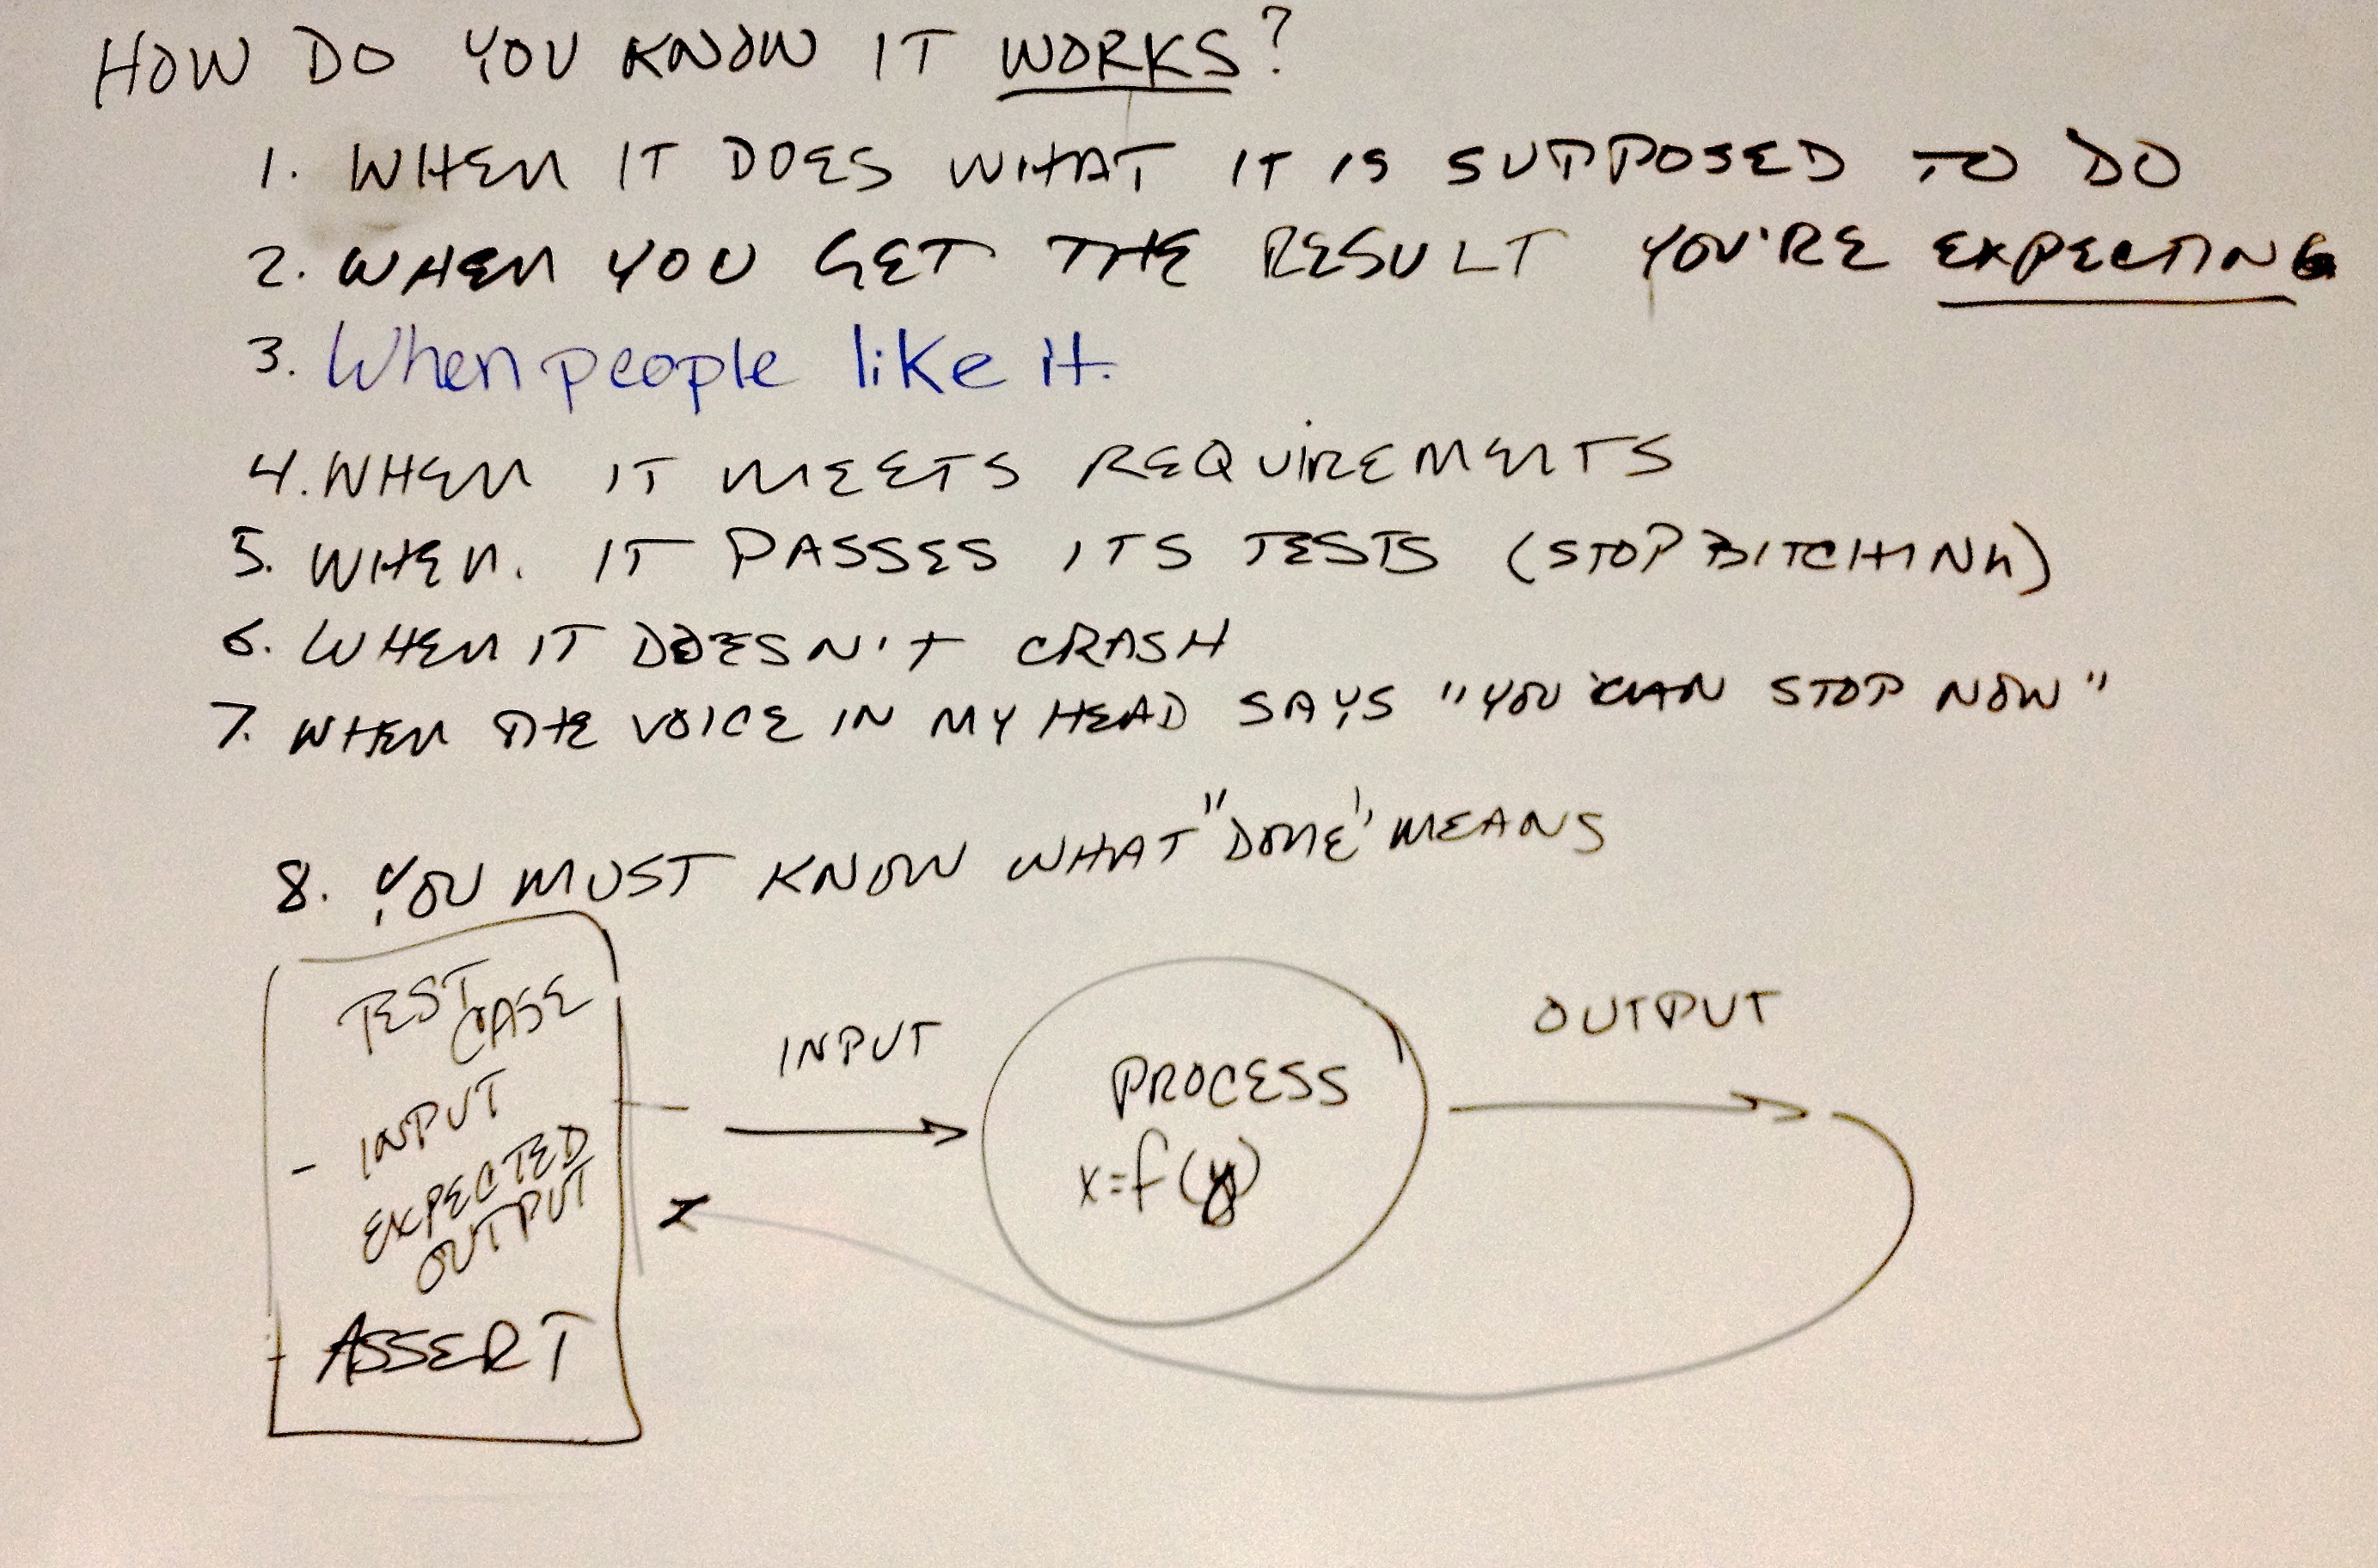 HOW DO YOU KNOW IT WORKS?
1. WHEN IT DOES WHAT IT IS SUPPOSED TO DO
2. WHEN YOU GET THE RESULT YOU'RE EXPECTING
3. When people like it.
4. WHEN IT MEETS REQUIREMENTS
5. WHEN. IT PASSES ITS TESTS (STOP BITCHING)
6. WHEN IT DOESN'T CRASH
7. WHEN THE VOICE IN MY HEAD SAYS "YOU CAN STOP NOW"
8. YOU MUST KNOW WHAT "DONE" MEANS
TEST
CASE
- INPUT
EXPECTED
OUTPUT
- ASSERT
INPUT
PROCESS
x=f(y)
OUTPUT